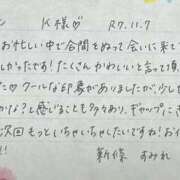 K様♡ R7.11.7
お忙しい中で合間をぬって会いに来て
しかったです！たくさんかわいいと言って頂
♡クールな印象がありましたが、少し
かな？と感じることも多々あり、ギャップにき
次回もっといちゃいちゃしたいですね！お
新條 すみれ